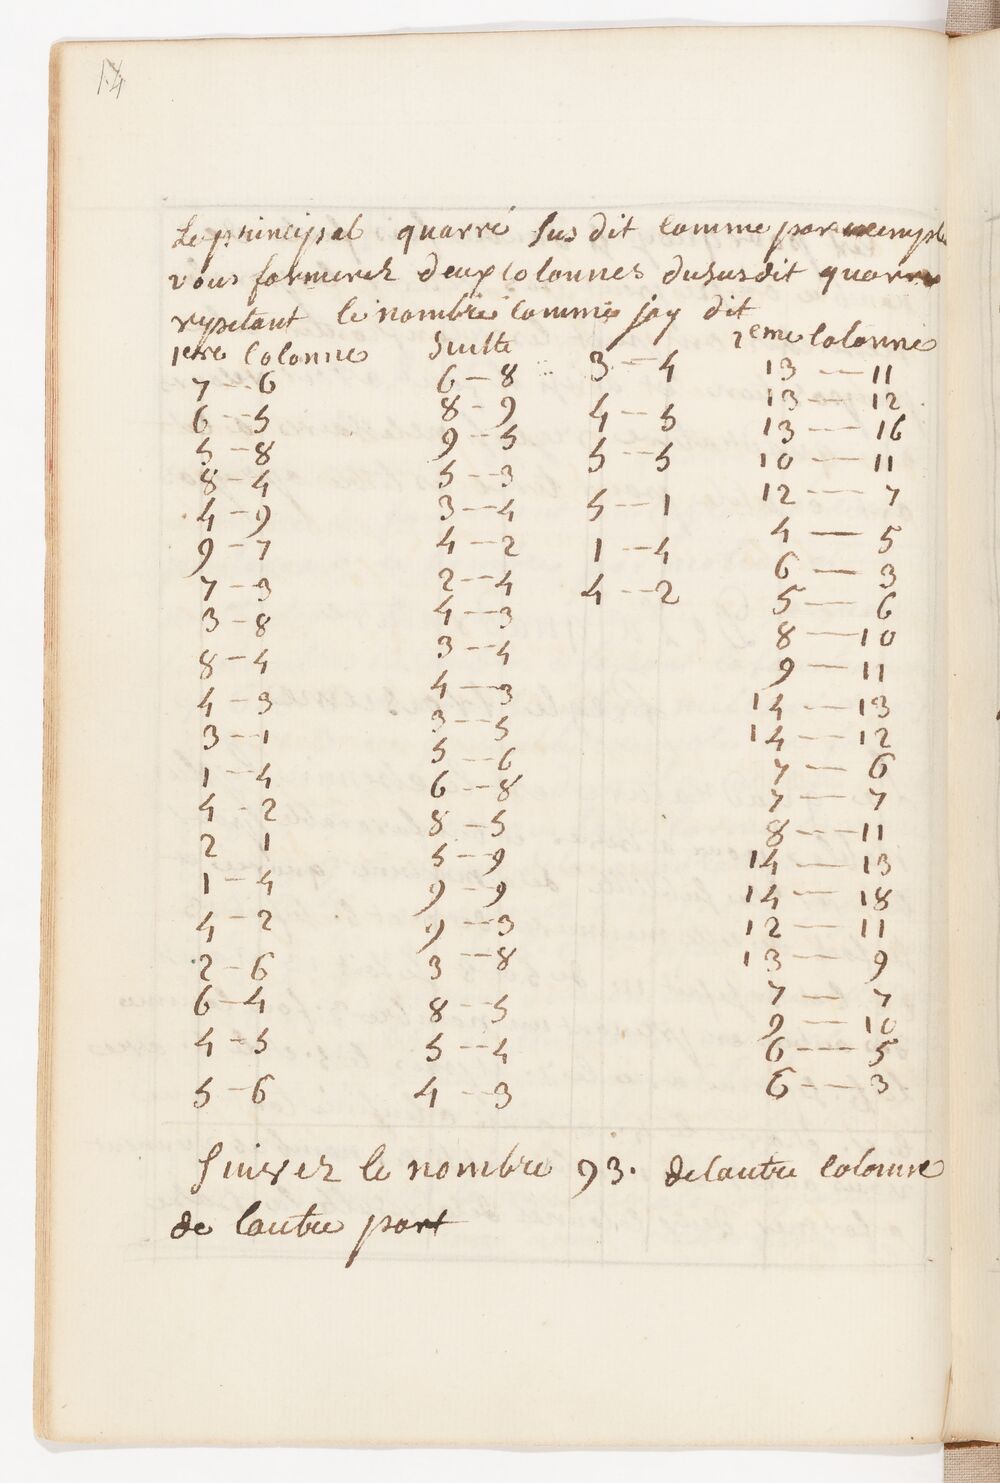 14
Le principal quarré sus dit comme par exemple
vous formerez deux colonnes dususdit quarré
repetant le nombre comme jay dit
1ere colonne
7 - 6
6 - 5
5 - 8
8 - 4
4 - 9
9 - 7
7 - 3
3 - 8
8 - 4
4 - 3
3 - 1
1 - 4
4 - 2
2 1
1 - 4
4 - 2
2 - 6
6 - 4
4 - 5
5 - 6
Suitte
6 - 8
8 - 9
9 - 5
5 - 3
3 - 4
4 - 2
2 - 4
4 - 3
3 - 4
4 - 3
3 - 5
5 - 6
6 - 8
8 - 5
5 - 9
9 - 9
9 - 3
3 - 8
8 - 5
5 - 4
4 - 3
3 - 4
4 - 5
5 - 5
5 - 1
1 - 4
4 - 2
2eme colonne
13 - 11
13 - 12
13 - 16
10 - 11
12 - 7
4 - 5
6 - 3
5 - 6
8 - 10
9 - 11
14 - 13
14 - 12
7 - 6
7 - 7
8 - 11
14 - 13
14 - 18
12 - 11
13 - 9
7 - 7
9 - 10
6 - 5
6 - 3
Suivez le nombre 93. delautre colonne
de lautre part